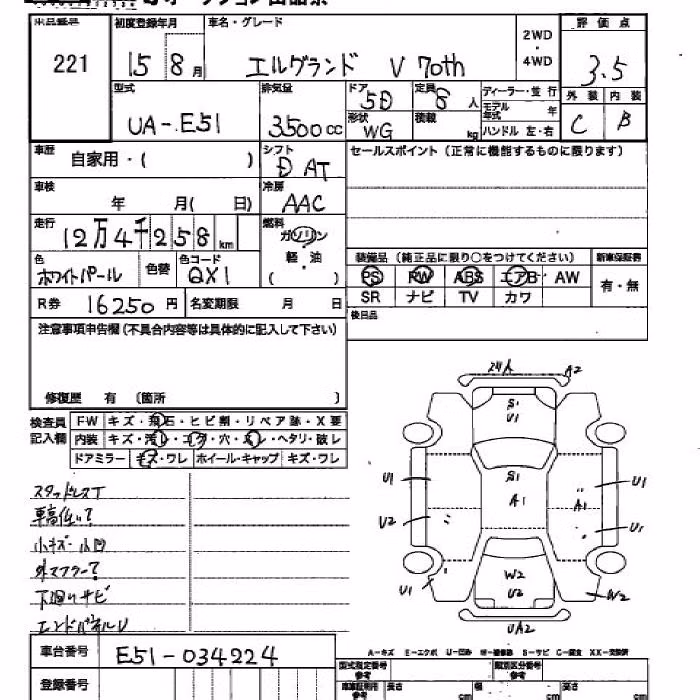 出品番号 初度登録年月 車名・グレード 2WD・4WD 評価点
221 15 8月 エルグランド V 70th 3.5
型式 排気量 ドア 5D 定員 8人 ディーラー・並行 外装 内装
UA-E51 3500cc 形状 WG 積載 kg モデル年式 年 C B
ハンドル 左・右
車歴 自家用・( ) シフト D AT セールスポイント(正常に機能するものに限ります)
車検 年 月( 日) 冷房 AAC
走行 12万4千258km 燃料 ガソリン
軽・油
( )
色 ホワイトパール 色替 色コード QX1
装備品(純正品に限り○をつけてください) 新車保証書
PS PW ABS エアB AW 有・無
SR ナビ TV カワ
R券 16250円 名変期限 月 日
後日品
注意事項申告欄(不具合内容等は具体的に記入して下さい)
修復歴 有 〔箇所 〕
検査員記入欄
FW キズ・飛石・ヒビ割・リペア跡・X要
内装 キズ・汚レ・コゲ・穴・スレ・ヘタリ・破レ
ドアミラー キズ・ワレ ホイール・キャップ キズ・ワレ
スタッドレスT
車高低い?
小キズ・小凹
外マフラー?
下廻りサビ
エンドパネルU
A2
S1
U1
U1 S1 U1
A1 A1
U2 U1
U1 W2 W2
U2
UA2
A-キズ E-エクボ U-凹み W-補修跡 S-サビ C-腐食 XX-交換済
車台番号 E51-034224
登録番号
型式指定番号 参考 類別区分番号 参考
車車証明用 参考 長さ cm 幅 cm 高さ cm